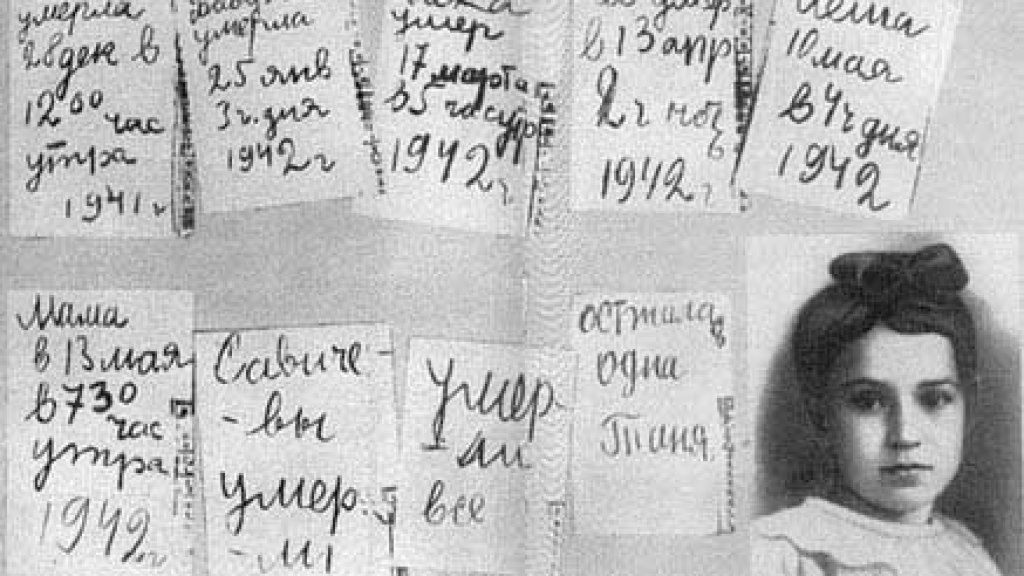 умерла
28 ден в
12 00 час
утра
1941 г
умерла
25 янв
3 ч. дня
1942 г
умер
17 марта
в 5 час утр
1942 г
умер
в 13 апр
2 ч ноч
1942 г
Леша
10 мая
в 4 ч дня
1942
Мама
в 13 мая
в 730
час
утра
1942 г
Савиче-
-вы
умер.
-ли
Умер-
-ли
все
одна
Таня.